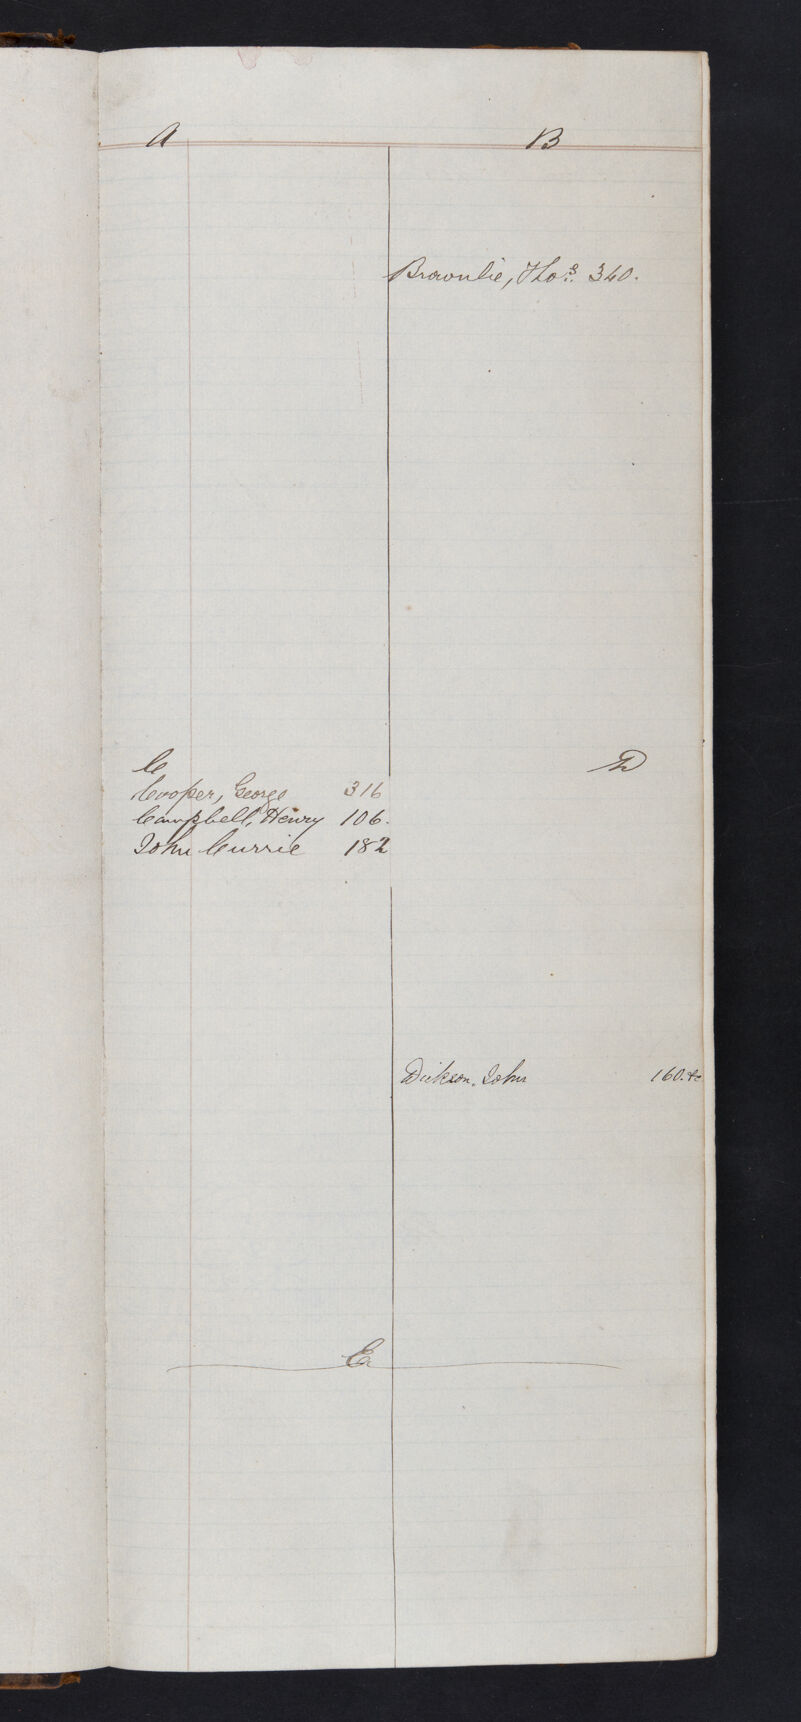 A
B
Brownlie, Thos. 340.
C
Cooper, George 316
Campbell, Henry 106.
John Currie 182
D
Dickson, John 160.&c
E